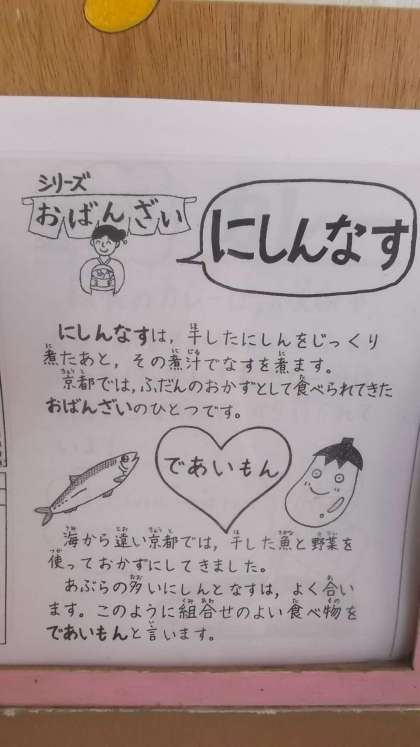 シリーズ
おばんざい
にしんなす
にしんなすは，干したにしんをじっくり
煮たあと，その煮汁でなすを煮ます。
京都では，ふだんのおかずとして食べられてきた
おばんざいのひとつです。
であいもん
海から遠い京都では，干した魚と野菜を
使っておかずにしてきました。
あぶらの多いにしんとなすは，よく合い
ます。このように組合せのよい食べ物を
であいもんと言います。